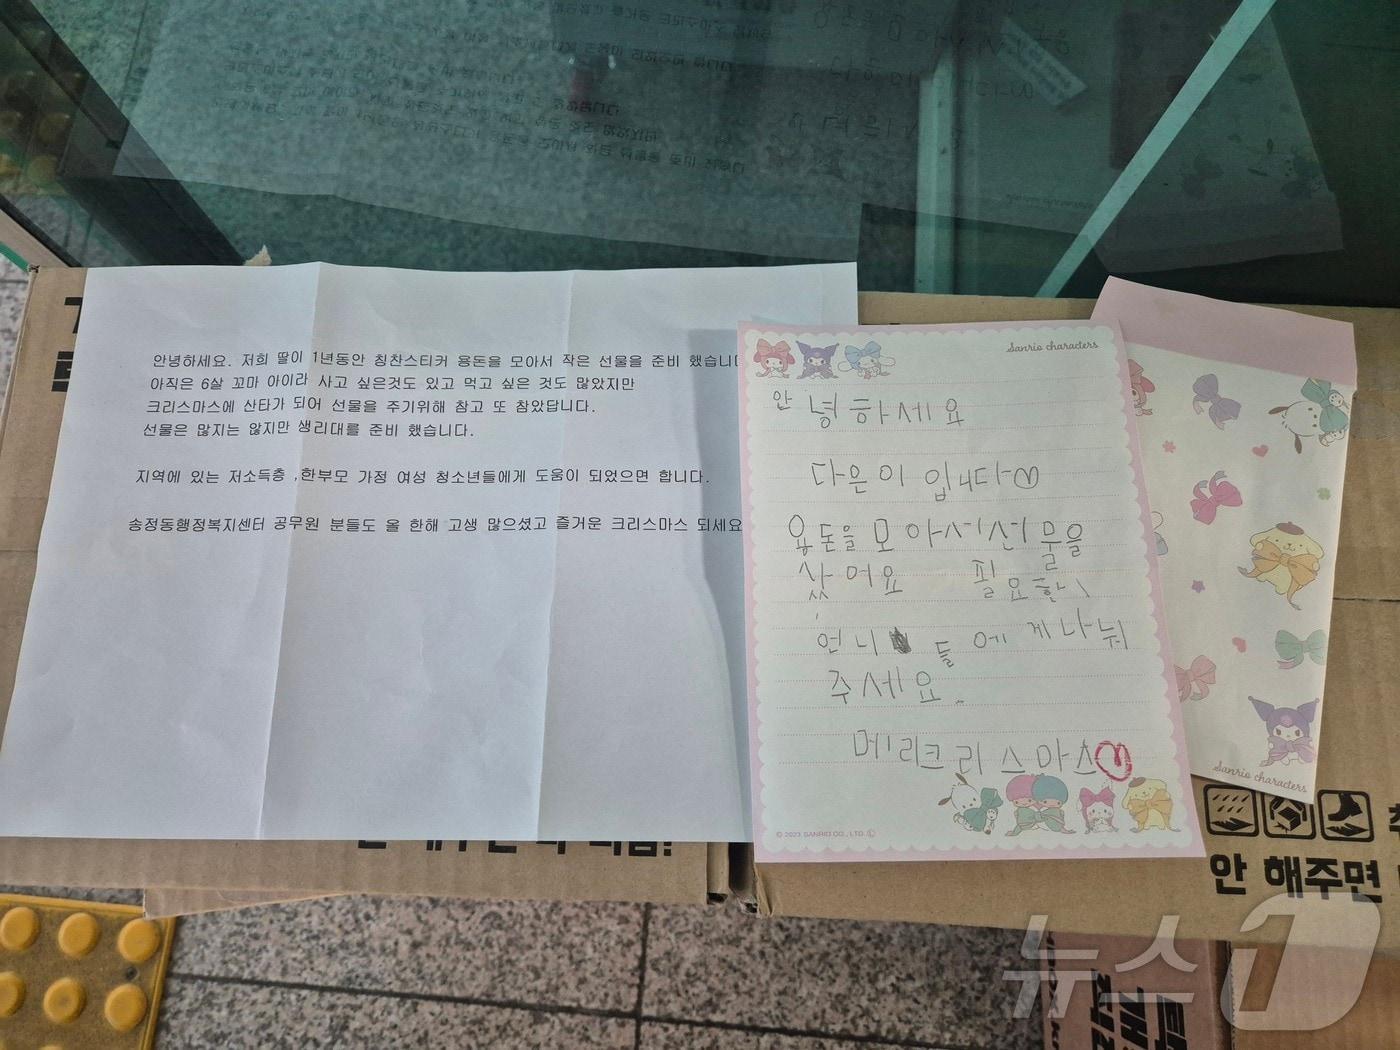 안녕하세요. 저희 딸이 1년동안 칭찬스티커 용돈을 모아서 작은 선물을 준비 했습니다
아직은 6살 꼬마 아이라 사고 싶은것도 있고 먹고 싶은 것도 많았지만
크리스마스에 산타가 되어 선물을 주기위해 참고 또 참았답니다.
선물은 많지는 않지만 생리대를 준비 했습니다.
지역에 있는 저소득층 ,한부모 가정 여성 청소년들에게 도움이 되었으면 합니다.
송정동행정복지센터 공무원 분들도 올 한해 고생 많으셨고 즐거운 크리스마스 되세요
Sanrio characters
안녕하세요
다은이 입니다♡
용돈을 모아서 선물을
샀어요 필요한
언니들에게 나눠
주세요.
메리크리스마스♡
© 2023 SANRIO CO., LTD. Ⓛ
Sanrio characters
안 해주면
뉴스1